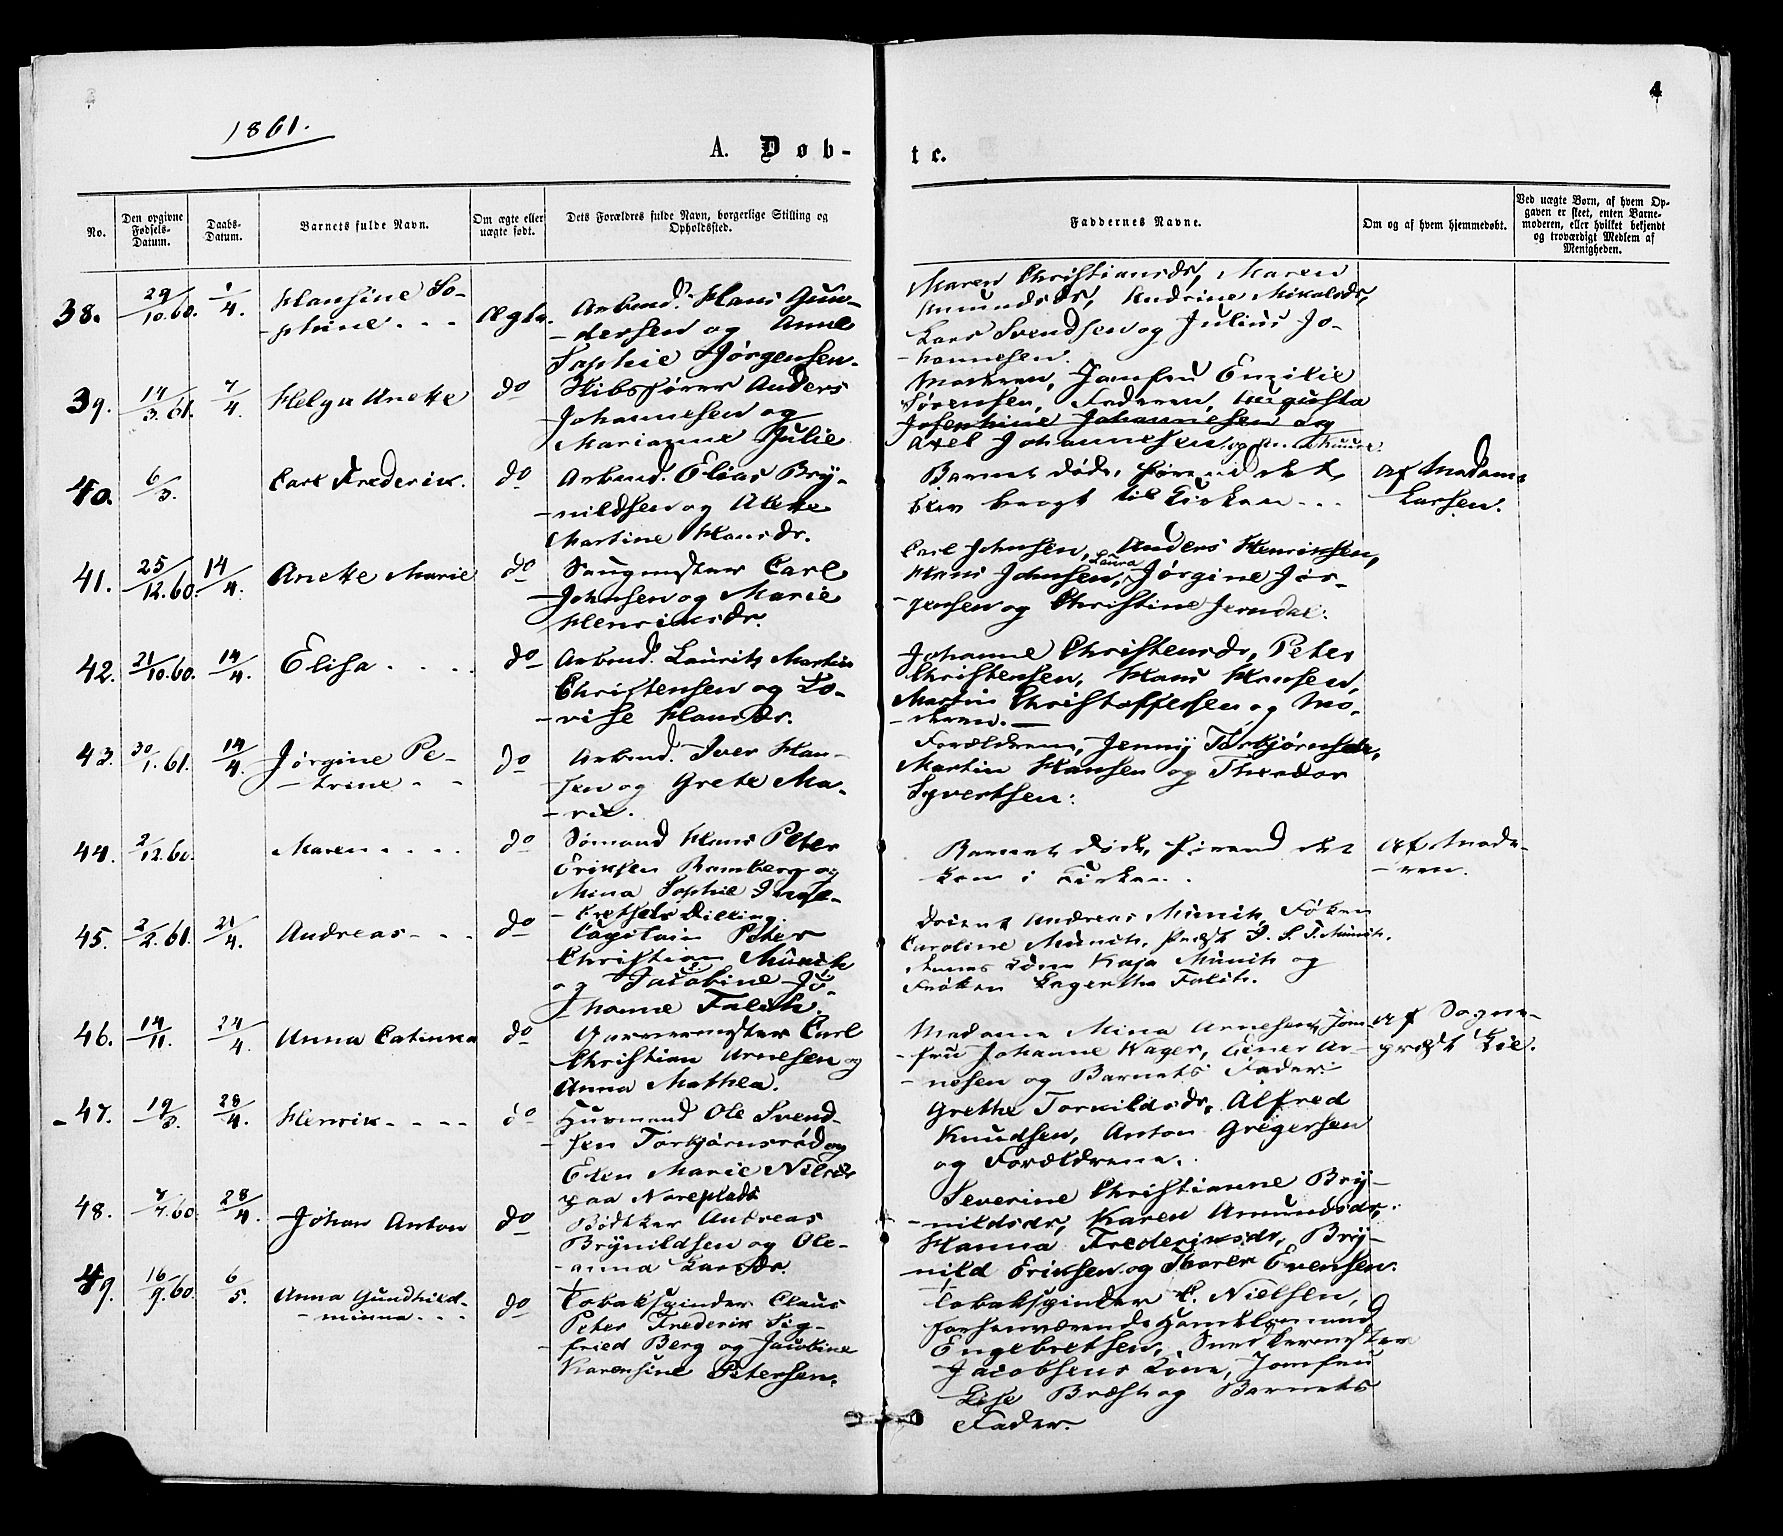 4
1861.
A. Døb-
te.
No.
Den opgivne Fødsels-Datum.
Daabs-Datum.
Barnets fulde Navn.
Om ægte eller uægte født.
Dets Forældres fulde Navn, borgerlige Stilling og Opholdssted.
Faddernes Navne.
Om og af hvem hjemmedøbt.
Ved uægte Børn, af hvem Opgaven er skeet, enten Barnemoderen, eller hvilket bekjendt og troværdigt Medlem af Menigheden.
38. 29/10.60. 1/4. Hansine So-
-phine . . .
Ægte.
Arbmd. Hans Gun-
-dersen og Anne
Sophie Jørgensen.
Maren Christiansdr, Maren
Amundsdr, Andrine Mikalsdr,
Lars Svendsen og Julius Jo-
-hannesen.
39. 14/3.61. 7/4. Helga Anette
do
Skibsfører Anders
Johannesen og
Marianne Julie
Moderen, Jomfru Emilie
Sørensen, Faderen, Augusta
Josephine Johannesen og
Axel Johannesen og
40. 6/3. Carl Frederik.
do
Arbmd. Elias Bry-
-nildsen og Alette
Martine Hansdr.
Barnet døde, førend det
blev bragt til Kirken . . .
Af Madam
Larsen.
41. 25/12.60. 14/4. Anette Marie
do
Saugmester Carl
Johnsen og Marie
Henriksdr.
Carl Johnsen, Anders Henriksen,
Hans Johnsen, Laura Jørgine Jør-
-gensen og Christine Jerndal.
42. 21/10.60. 14/4. Elisa . . . .
do
Arbmd. Laurits Martin
Christensen og Lo-
-vise Hansdr.
Johanne Christensdr, Peter
Christensen, Hans Hansen,
Martin Christoffersen og Mo-
-deren.
43. 30/1.61. 14/4. Jørgine Pe-
-trine - -
do
Arbmd. Iver Han-
-sen og Grete Ma-
-rie.
Forældrene, Jenny Torkjørnsdr,
Martin Hansen og Theodor
Syvertsen.
44. 2/12.60. Maren . . . .
do
Sømand Hans Peter
Eriksen Bamberg og
Mina Sophie Ingle-
-bretsdr Dilling.
Barnet døde, førend det
kom i Kirken.
Af Mode-
-ren.
45. 2/2.61. 21/4. Andreas - - -
do
Capitain Peter
Christian Münich
og Jacobine Jo-
-hanne
Andreas Münich, Frøken
Caroline Münich, Præst Münich,
Kone Kaja Münich og
Frøken Lagertha
46. 14/11. 24/4. Anna Catinka
do
Garvermester Carl
Christian Arnesen og
Anna Mathea.
Madame Mina Arnesen, Jom-
-fru Johanne Wager, Einer Ar-
-nesen og Barnets Fader.
Af Sogne-
præst Kiel.
47. 19/3. 28/4. Henrik - - - -
do
Huusmand Ole Svend-
-sen Torkjørnsrød og
Elen Marie Nilsdr
paa Noreplads
Grethe Torkildsdr, Alfred
Knudsen, Anton Gregersen
og Forældrene.
48. 7/7.60. 28/4. Johan Anton
do
Bødtker Andreas
Brynildsen og Ole-
-anna Larsdr.
Severine Christianne Bry-
-nildsdr, Karen Amundsdr,
Hanna Frederiksdr, Bry-
-nild Eriksen og Thorer Evensen.
49. 16/9.60. 6/5. Anna Gundhild-
-minna . . .
do
Tobakspinder Claus
Peter Frederik Sig-
-fried Berg og Jacobine
Karensine Petersen.
Tobakspinder C. Nielsen,
forhenværende Handelsmand
Engebretsen, Snedkermester
Jacobsens Kone, Jomfru
Lise Bræst og Barnets
Fader.